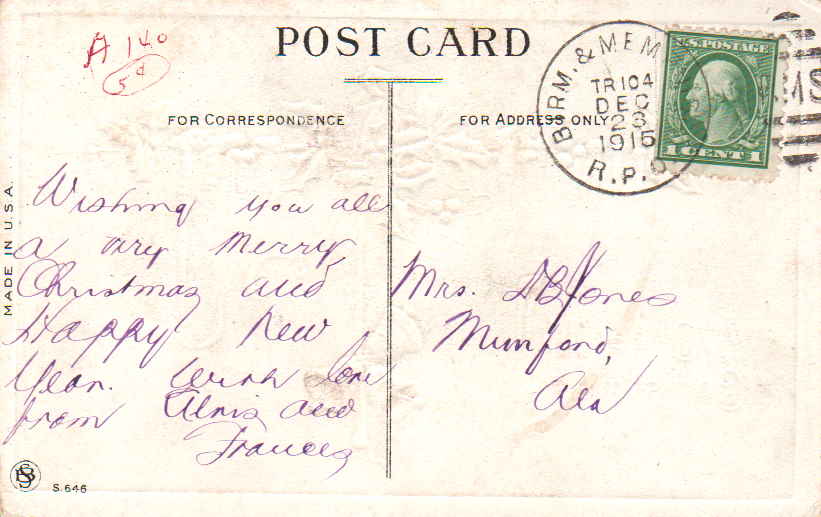 A 140
5¢
POST CARD
BIRM. & MEM
TR 104
DEC
23
1915
R.P.O
U.S. POSTAGE
1 CENT 1
MS
FOR CORRESPONDENCE
FOR ADDRESS ONLY
MADE IN U.S.A.
Wishing you all
a very Merry
Christmas and
Happy New
Year. With love
from and
Frances
Mrs. Jones
Munford,
Ala
S. 646